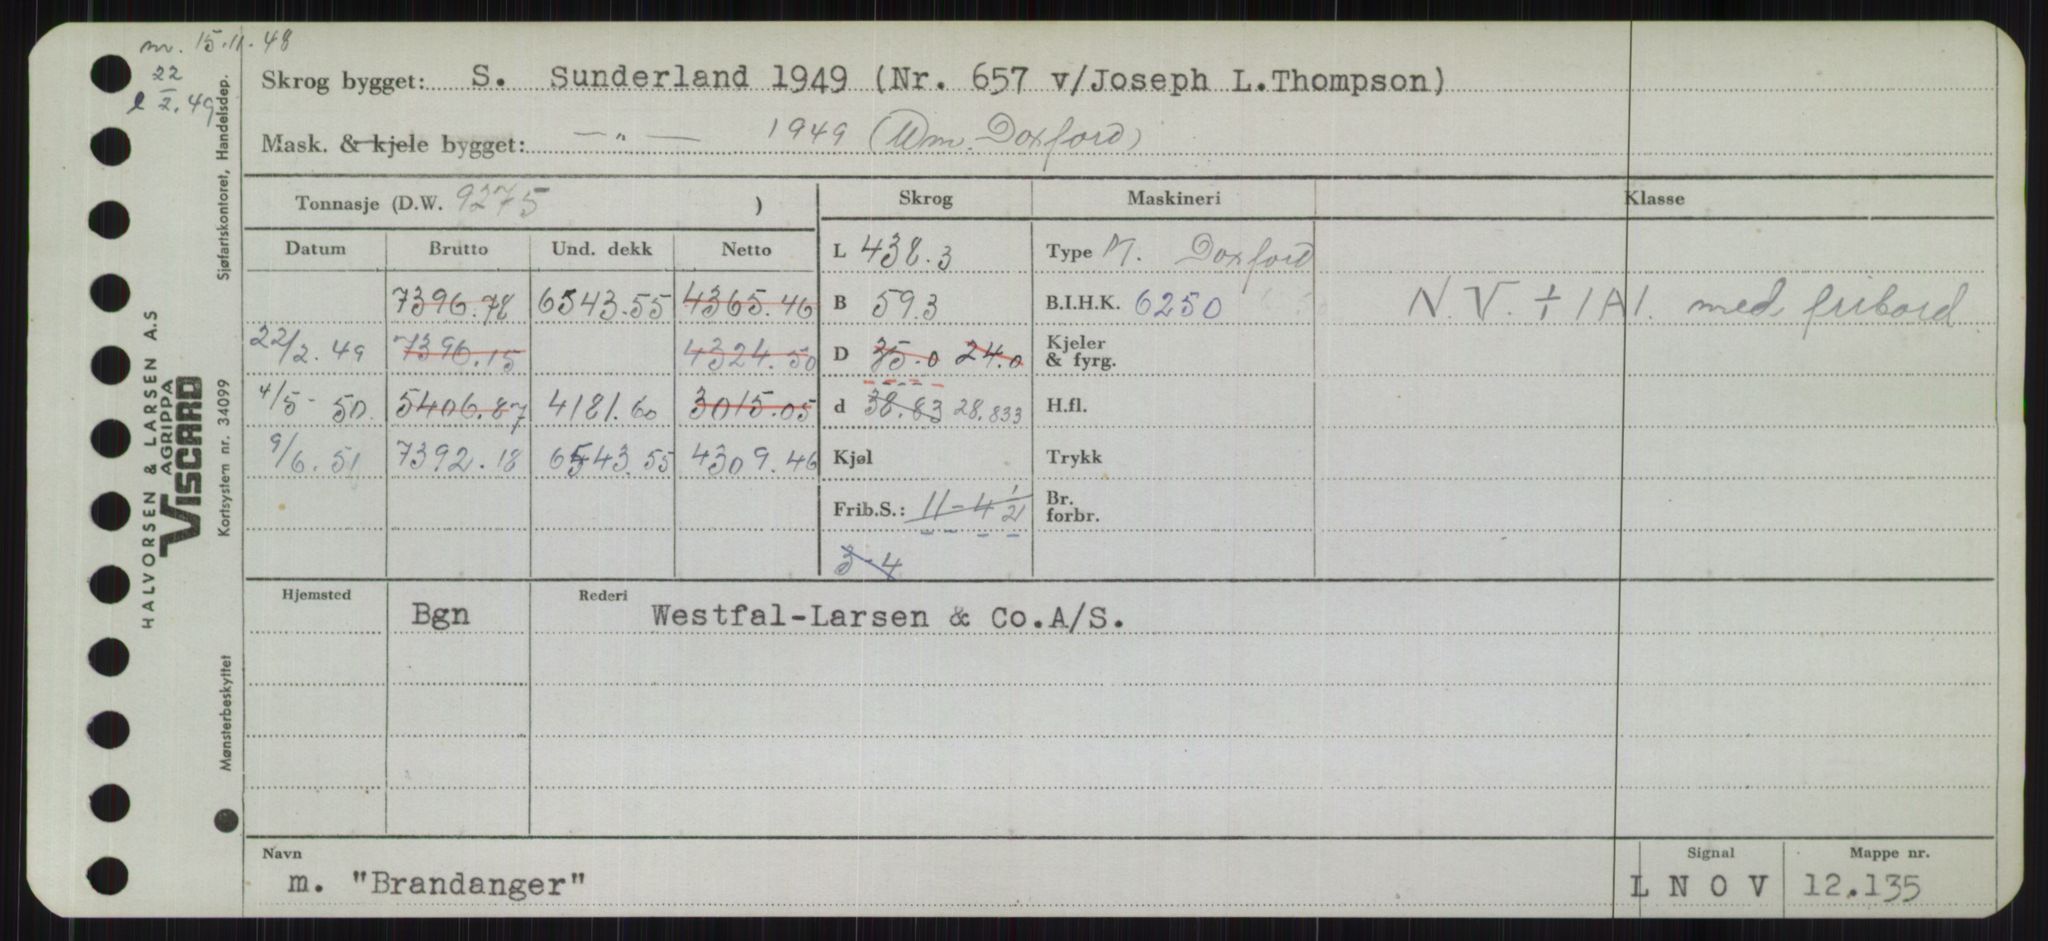 m. 15.11.48
22
l 2.49
Skrog bygget: S. Sunderland 1949 (Nr. 657 v/Joseph L.Thompson)
Mask. & kjele bygget: — „ — 1949 (Wm. Doxford)
Tonnasje (D.W. 9275 )
Skrog Maskineri Klasse
Datum Brutto Und. dekk Netto
L 438.3 Type M. Doxford
7396.78 6543.55 4365.46 B 59.3 B.I.H.K. 6250 N.V. + 1A1. med fribord
22/2. 49 7396.15 4324.50 D 35.0 24.0 Kjeler & fyrg.
4/5- 50. 5406.87 4181.60 3015.05 d 38.83 28.833 H.fl.
9/6. 51 7392.18 6543.55 4309.46 Kjøl Trykk
Frib.S.: 11-4 1/2 Br. forbr.
3-4
Hjemsted Bgn Rederi Westfal-Larsen & Co.A/S.
Navn m. "Brandanger"
Signal L N O V
Mappe nr. 12.135
HALVORSEN & LARSEN A.S
AGRIPPA
VISCARD
Sjøfartskontoret, Handelsdep.
Kortsystem nr. 34099
Mønsterbeskyttet